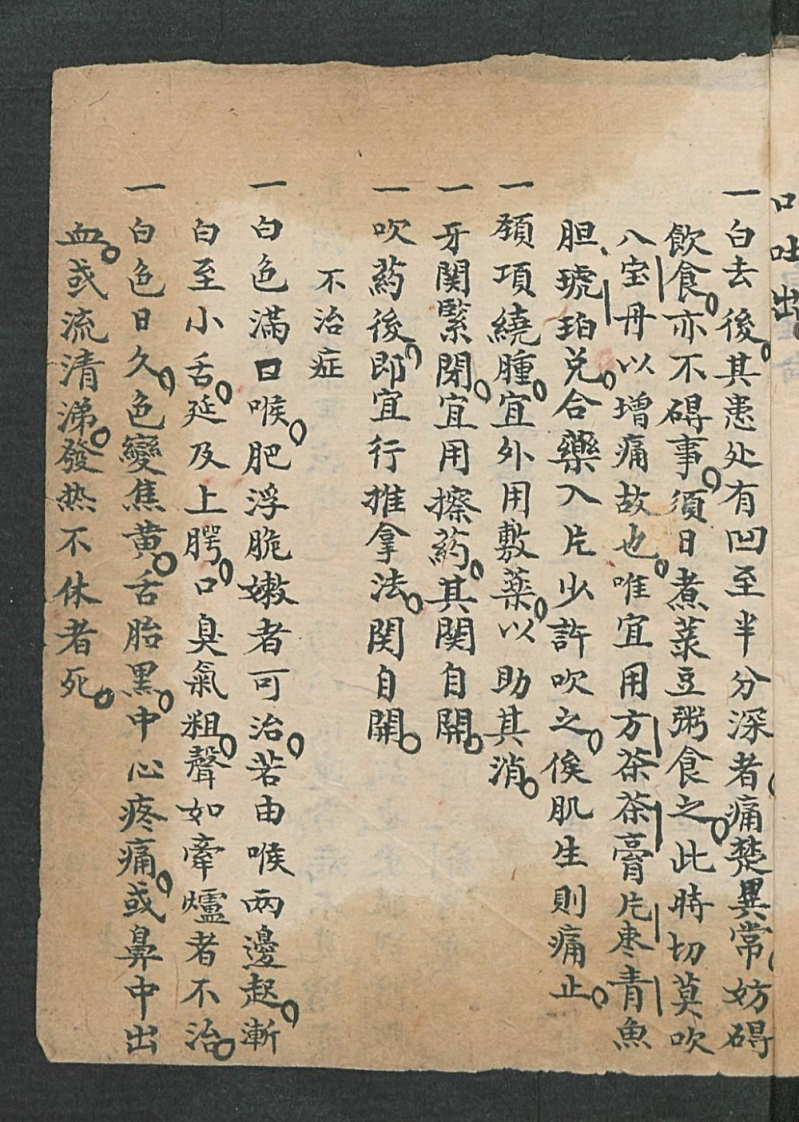 口吐出
一白去後其患处有凹至半分深者痛楚異常妨碍
飲食亦不碍事須日煮菉豆粥食之此時切莫吹
八宝丹以增痛故也唯宜用方茶茶膏片枣青魚
胆琥珀兑合藥入片少許吹之俟肌生則痛止
一頚項繞腫宜外用敷薬以助其消
一牙関緊閉宜用擦葯其関自開
一吹葯後即宜行推拿法関自開
不治症
一白色滿口喉肥浮脆嫩者可治若由喉两邊起漸
白至小舌延及上腭口臭氣粗聲如牽爐者不治
一白色日久色變焦黄舌胎黒中心疼痛或鼻中出
血或流清涕發热不休者死